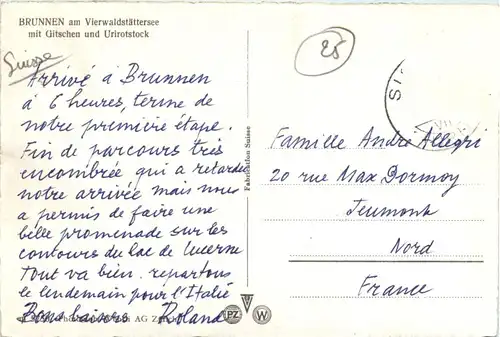 BRUNNEN am Vierwaldstättersee
mit Gitschen und Urirotstock
Suisse
25
Arrivé à Brunnen
à 6 heures, terme de
notre première étape.
Fin de parcours très
encombrée qui a retardé
notre arrivée mais nous
a permis de faire une
belle promenade sur les
contours du lac de Lucerne
Tout va bien. repartons
le lendemain pour l'Italie
Bons baisers Roland
AG
Fabrication Suisse
PZ
W
SI
VII
Famille André Allegri
20 rue Max Dormoy
Jeumont
Nord
France